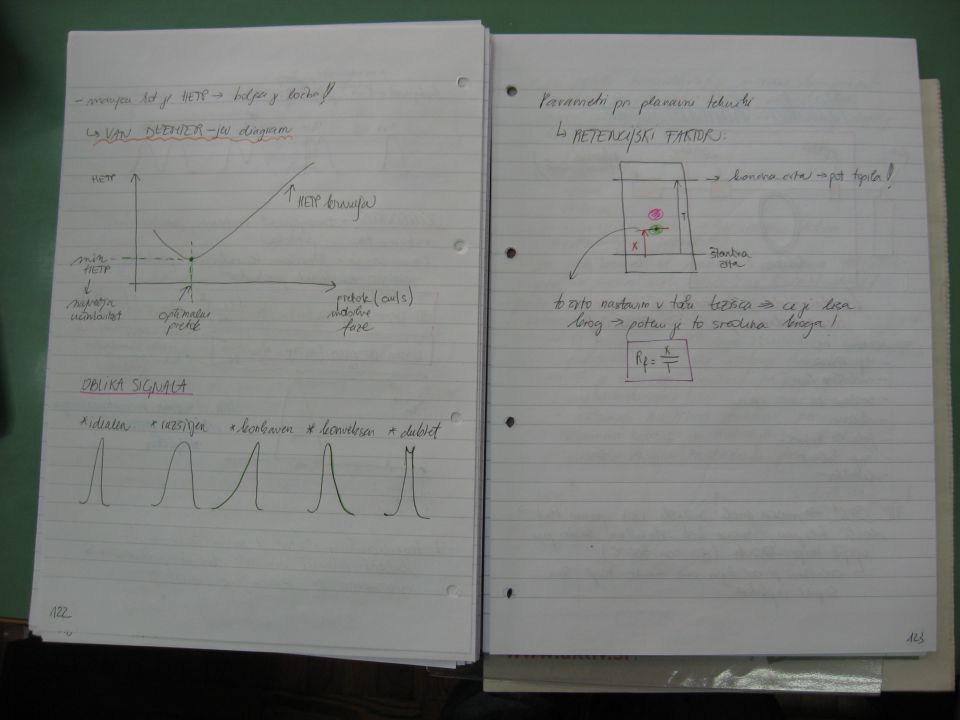 - manjša kot je HETP → boljša je ločba!!
↳ VAN DEEMTER-jev diagram
HETP
↑ HETP krivulja
min
HETP
↓
največja
učinkovitost
optimalen
pretok
pretok (cm/s)
mobilne
faze
OBLIKA SIGNALA
* idealen * razširjen * konkaven * konveksen * dublet
122
Parametri pri planarni tehniki
↳ RETENCIJSKI FAKTOR:
→ končna črta → pot topila!!
T
X
štartna
črta
to črto nastavim v točko težišča ⇒ če je lisa
krog → potem je to središče kroga!
Rf = X/T
123